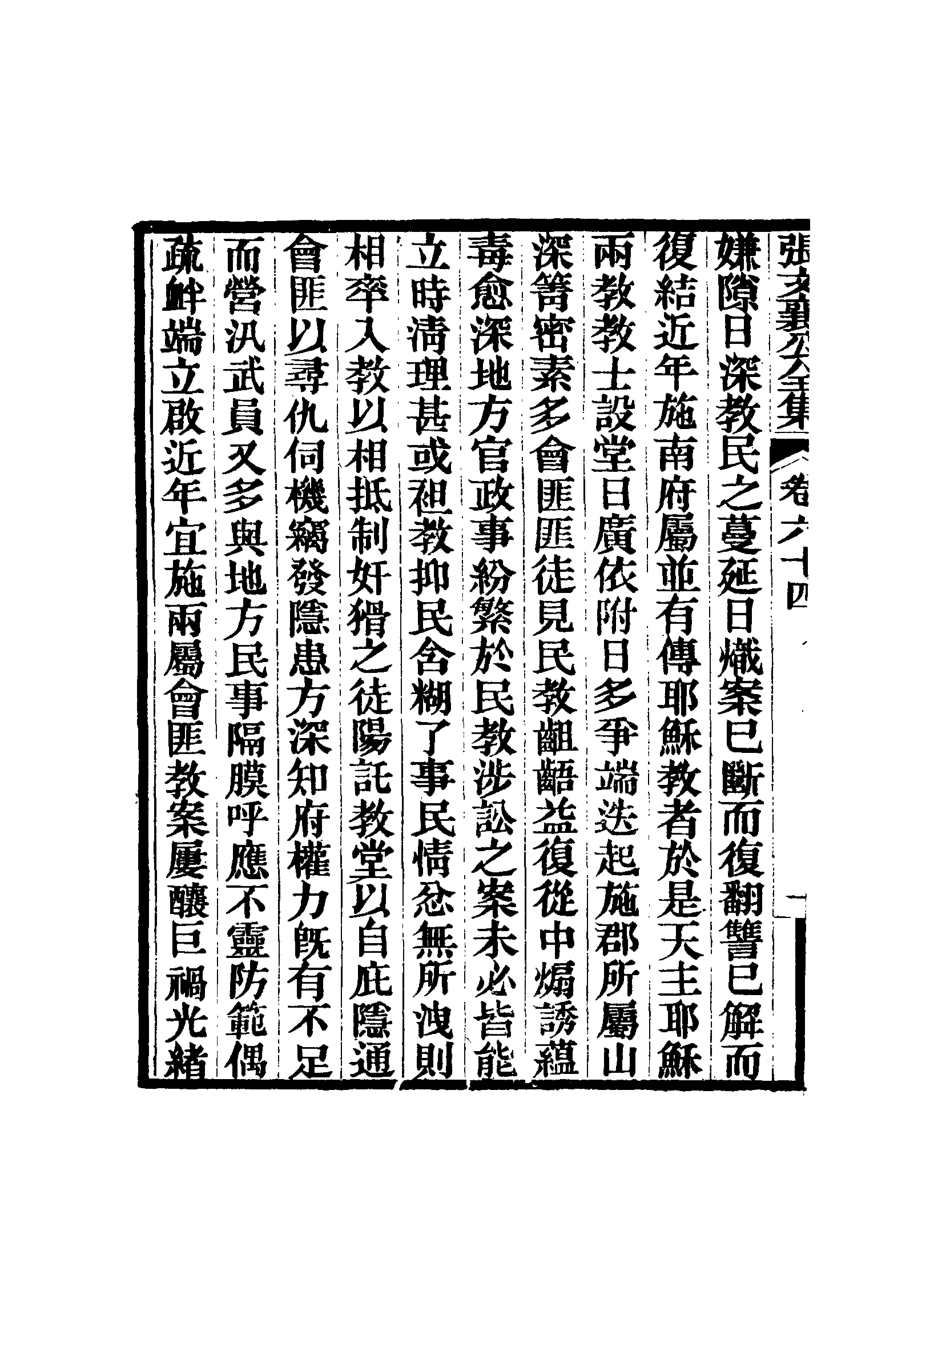 張文襄公全集 卷六十四 一
嫌隙日深教民之蔓延日熾案已斷而復翻讐已解而
復結近年施南府屬並有傳耶穌教者於是天主耶穌
兩教教士設堂日廣依附日多爭端迭起施郡所屬山
深箐密素多會匪匪徒見民教齟齬益復從中煽誘蘊
毒愈深地方官政事紛繁於民教涉訟之案未必皆能
立時清理甚或袒教抑民含糊了事民情忿無所洩則
相率入教以相抵制奸猾之徒陽託教堂以自庇隱通
會匪以尋仇伺機竊發隱患方深知府權力旣有不足
而營汛武員又多與地方民事隔膜呼應不靈防範偶
疏衅端立啟近年宜施兩屬會匪教案屢釀巨禍光緒